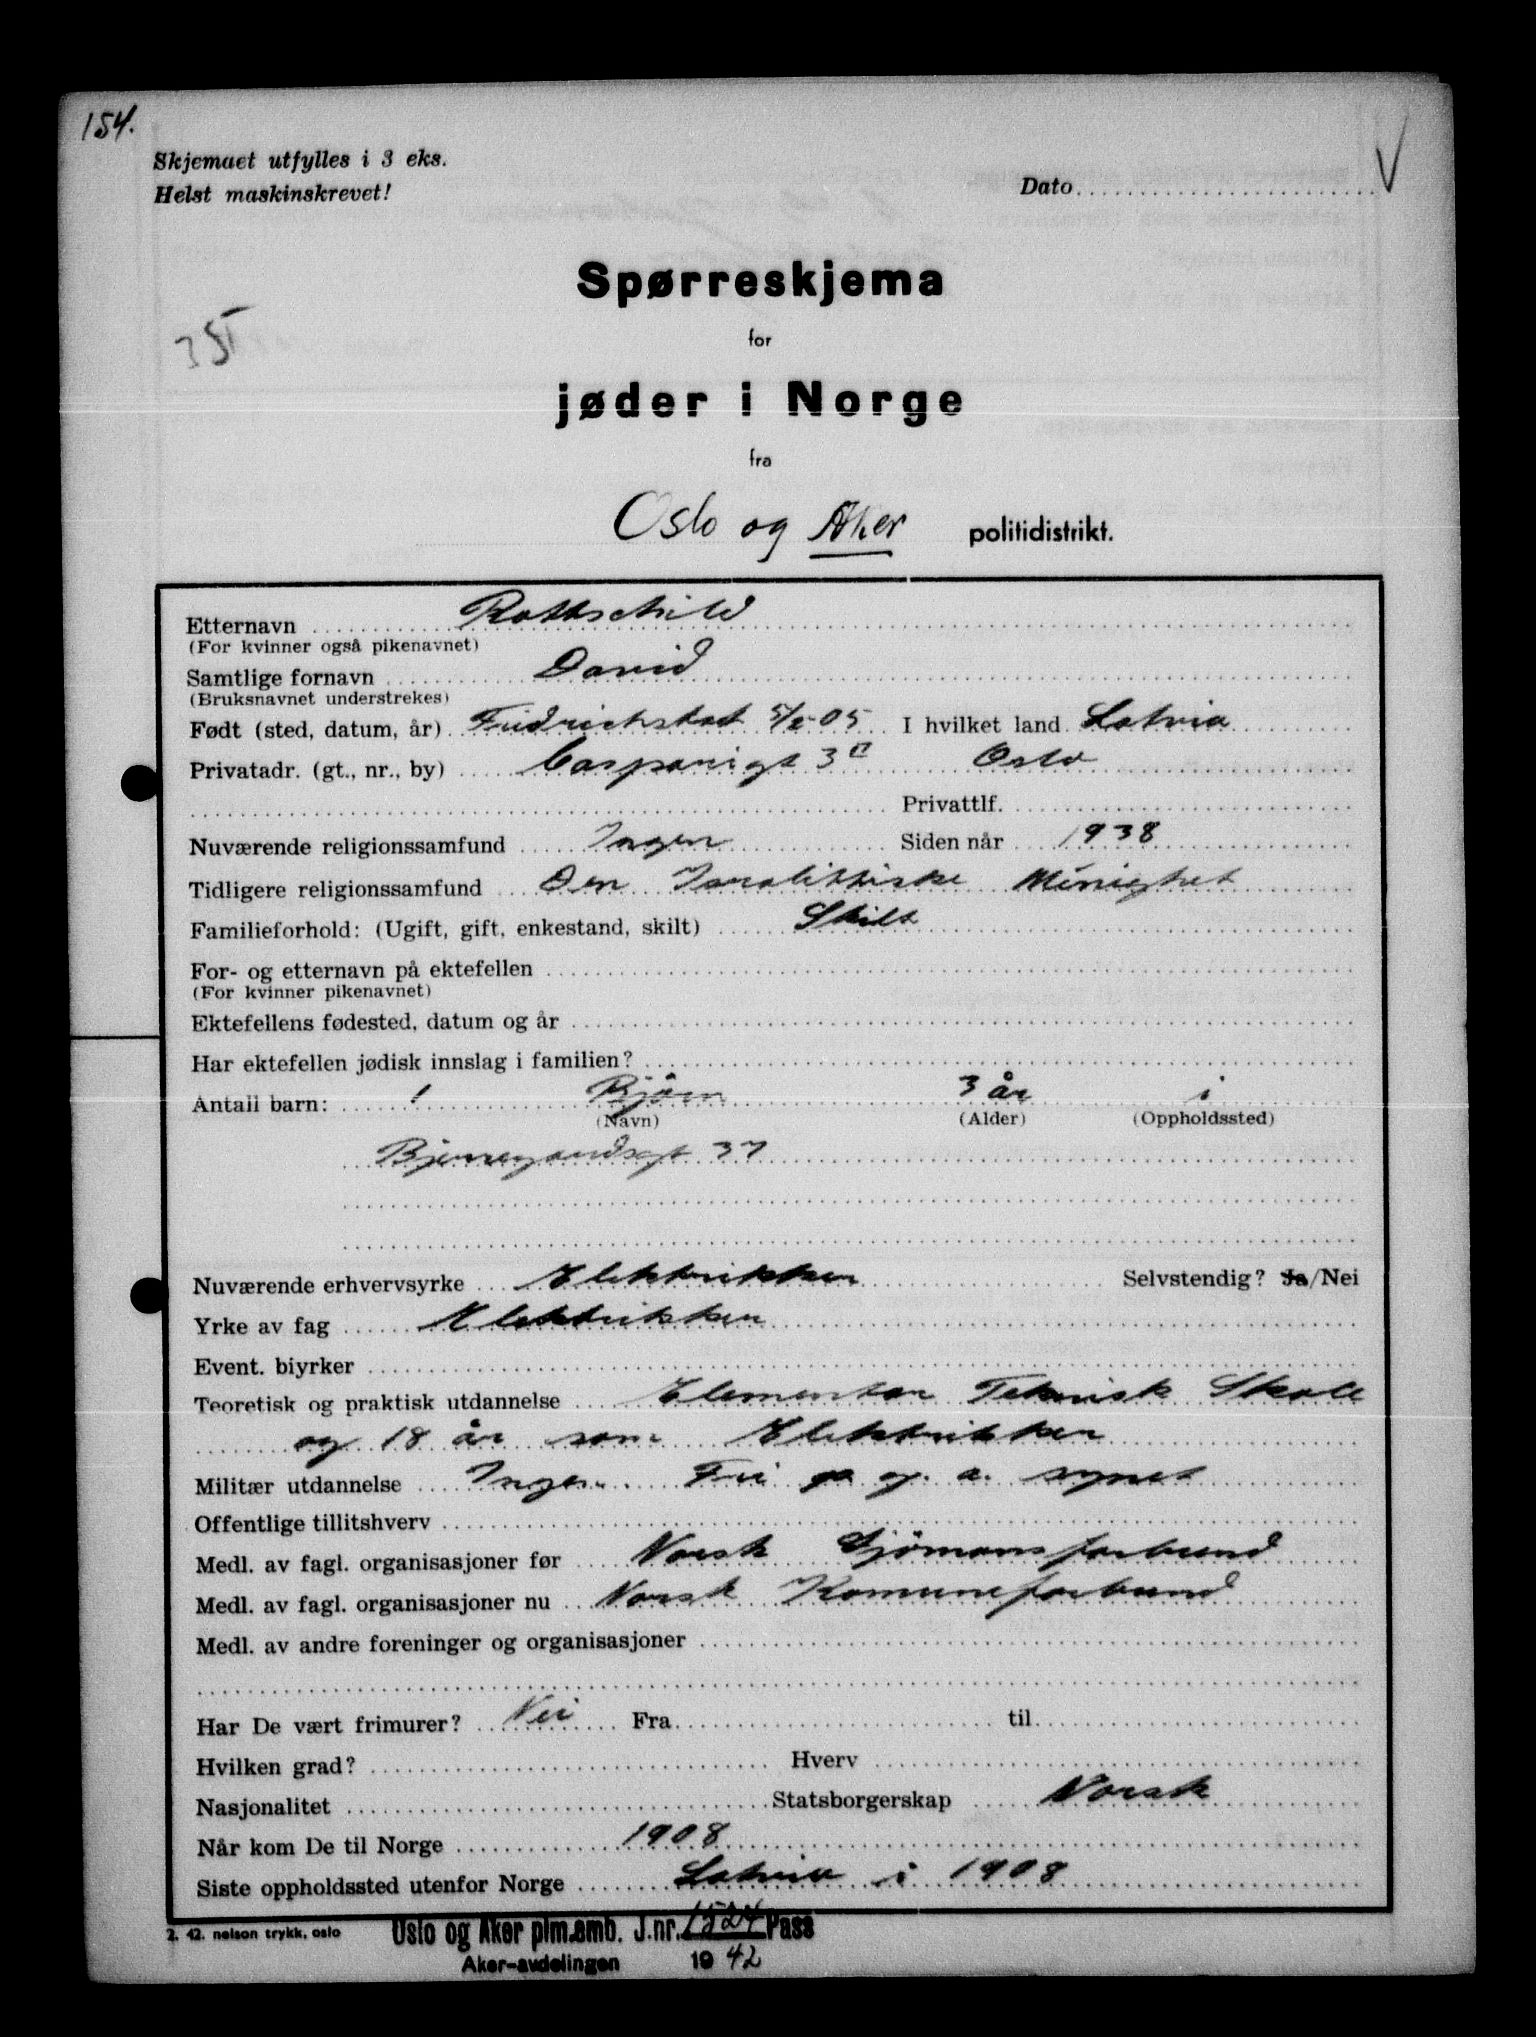 154.
Skjemaet utfylles i 3 eks.
Helst maskinskrevet!
Dato
V
Spørreskjema
for
jøder i Norge
fra
Oslo og Aker politidistrikt.
Etternavn Rothschild
(For kvinner også pikenavnet)
Samtlige fornavn David
(Bruksnavnet understrekes)
Født (sted, datum, år) Fridrichstat 5/2-05 I hvilket land Latvia
Privatadr. (gt., nr., by) Casparigt 3 II Oslo
Privattlf.
Nuværende religionssamfund Ingen Siden når 1938
Tidligere religionssamfund Den Israelittiske Minighet
Familieforhold: (Ugift, gift, enkestand, skilt) Skilt
For- og etternavn på ektefellen
(For kvinner pikenavnet)
Ektefellens fødested, datum og år
Har ektefellen jødisk innslag i familien?
Antall barn: 1 Bjørn 3 år i
(Navn) (Alder) (Oppholdssted)
37
Nuværende erhvervsyrke Elektrikker Selvstendig? Ja/Nei
Yrke av fag Elektrikker
Event. biyrker
Teoretisk og praktisk utdannelse Elementær Teknisk Skole
og 18 år som Elektrikker
Militær utdannelse Ingen. Fri på gr. a. synet
Offentlige tillitshverv
Medl. av fagl. organisasjoner før Norsk Sjømansforbund
Medl. av fagl. organisasjoner nu Norsk Komuneforbund
Medl. av andre foreninger og organisasjoner
Har De vært frimurer? Nei Fra til
Hvilken grad? Hverv
Nasjonalitet Statsborgerskap Norsk
Når kom De til Norge 1908
Siste oppholdssted utenfor Norge Latvia i 1908
2. 42. nelson trykk, oslo
Oslo og Aker plm.amb. J.nr. 1524 Pass
Aker-avdelingen 1942